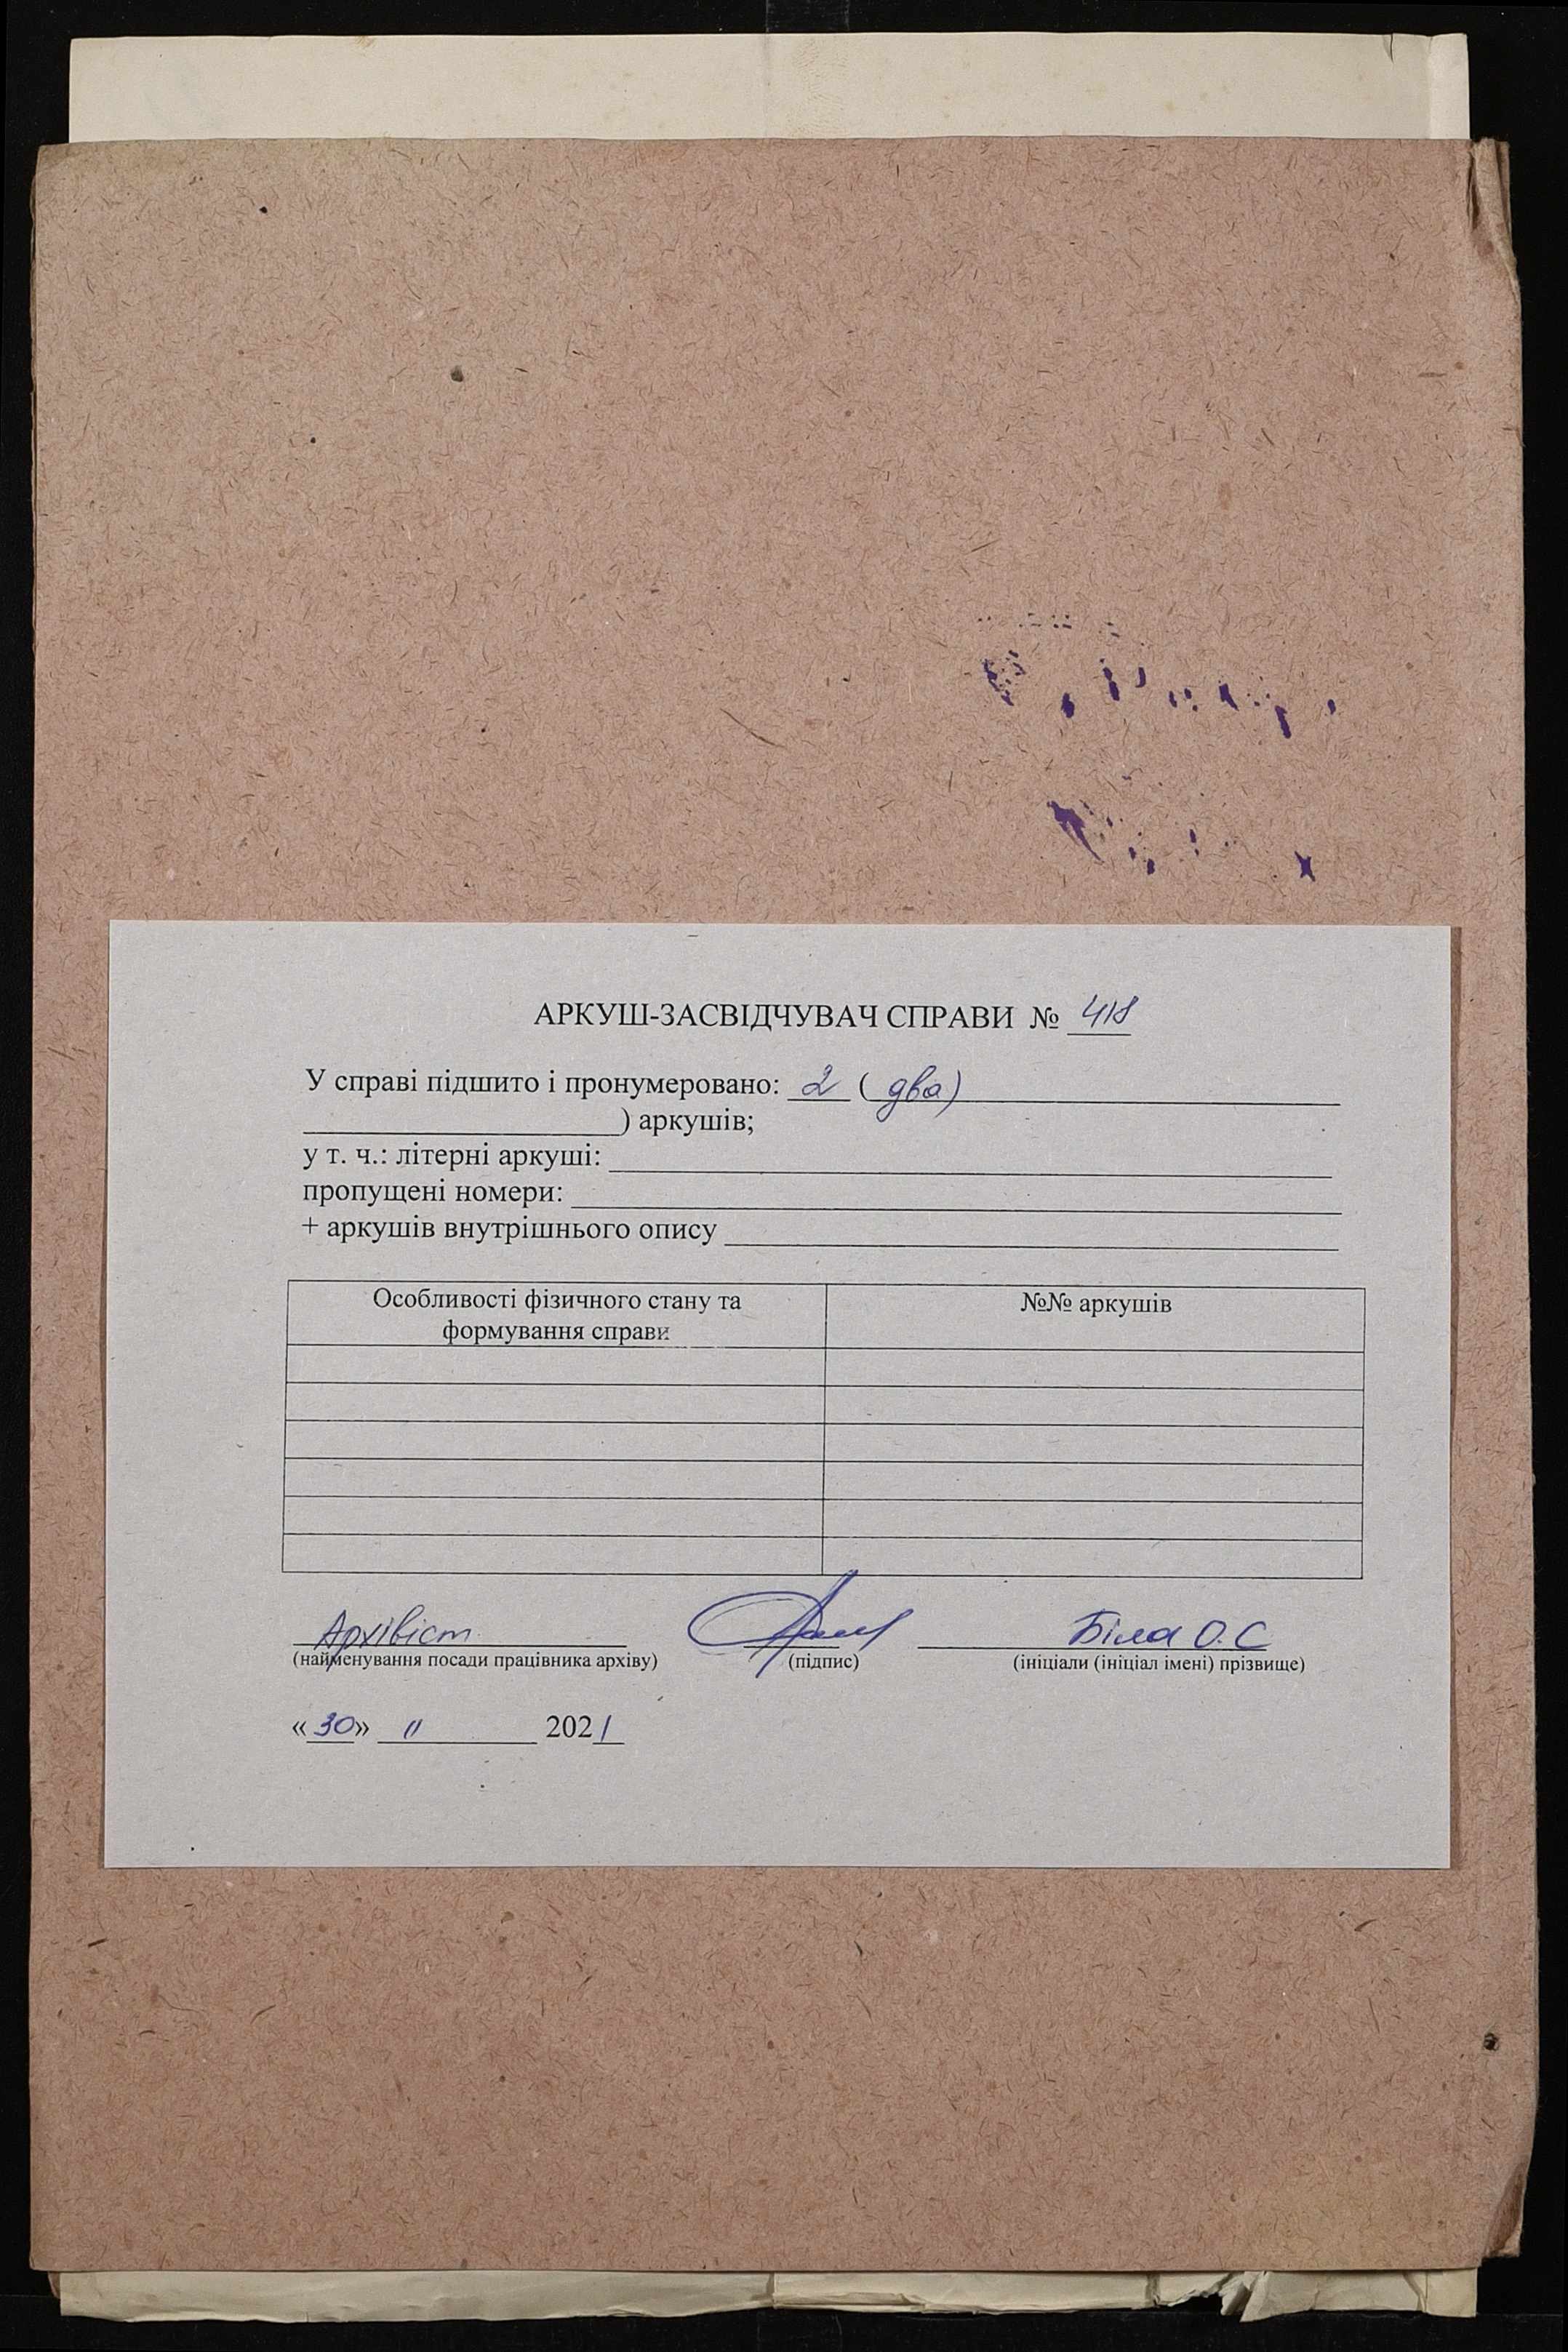 АРКУШ-ЗАСВІДЧУВАЧ СПРАВИ № 418
У справі підшито і пронумеровано: 2 ( два)
) аркушів;
у т. ч.: літерні аркуші:
пропущені номери:
+ аркушів внутрішнього опису
Особливості фізичного стану та
формування справи
№№ аркушів
Архівіст Біла О.С
(найменування посади працівника архіву) (підпис) (ініціали (ініціал імені) прізвище)
«30» 11 2021